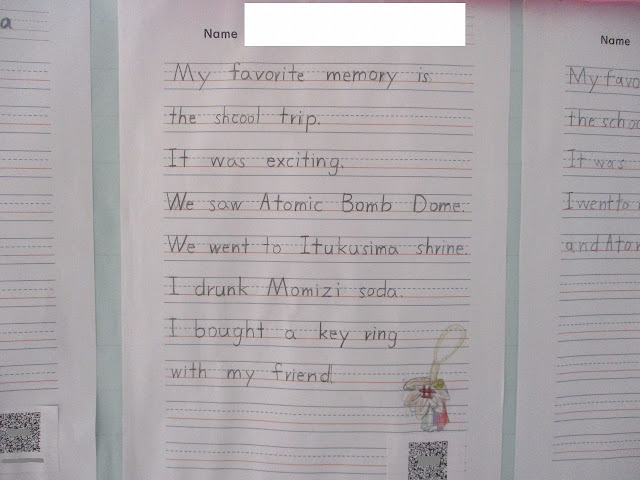 a
Name
My favorite memory is
the shcool trip.
It was exciting.
We saw Atomic Bomb Dome.
We went to Itukusima shrine.
I drunk Momizi soda.
I bought a key ring
with my friend.
Name
My favo
the schoo
It was
I went to
and Atom